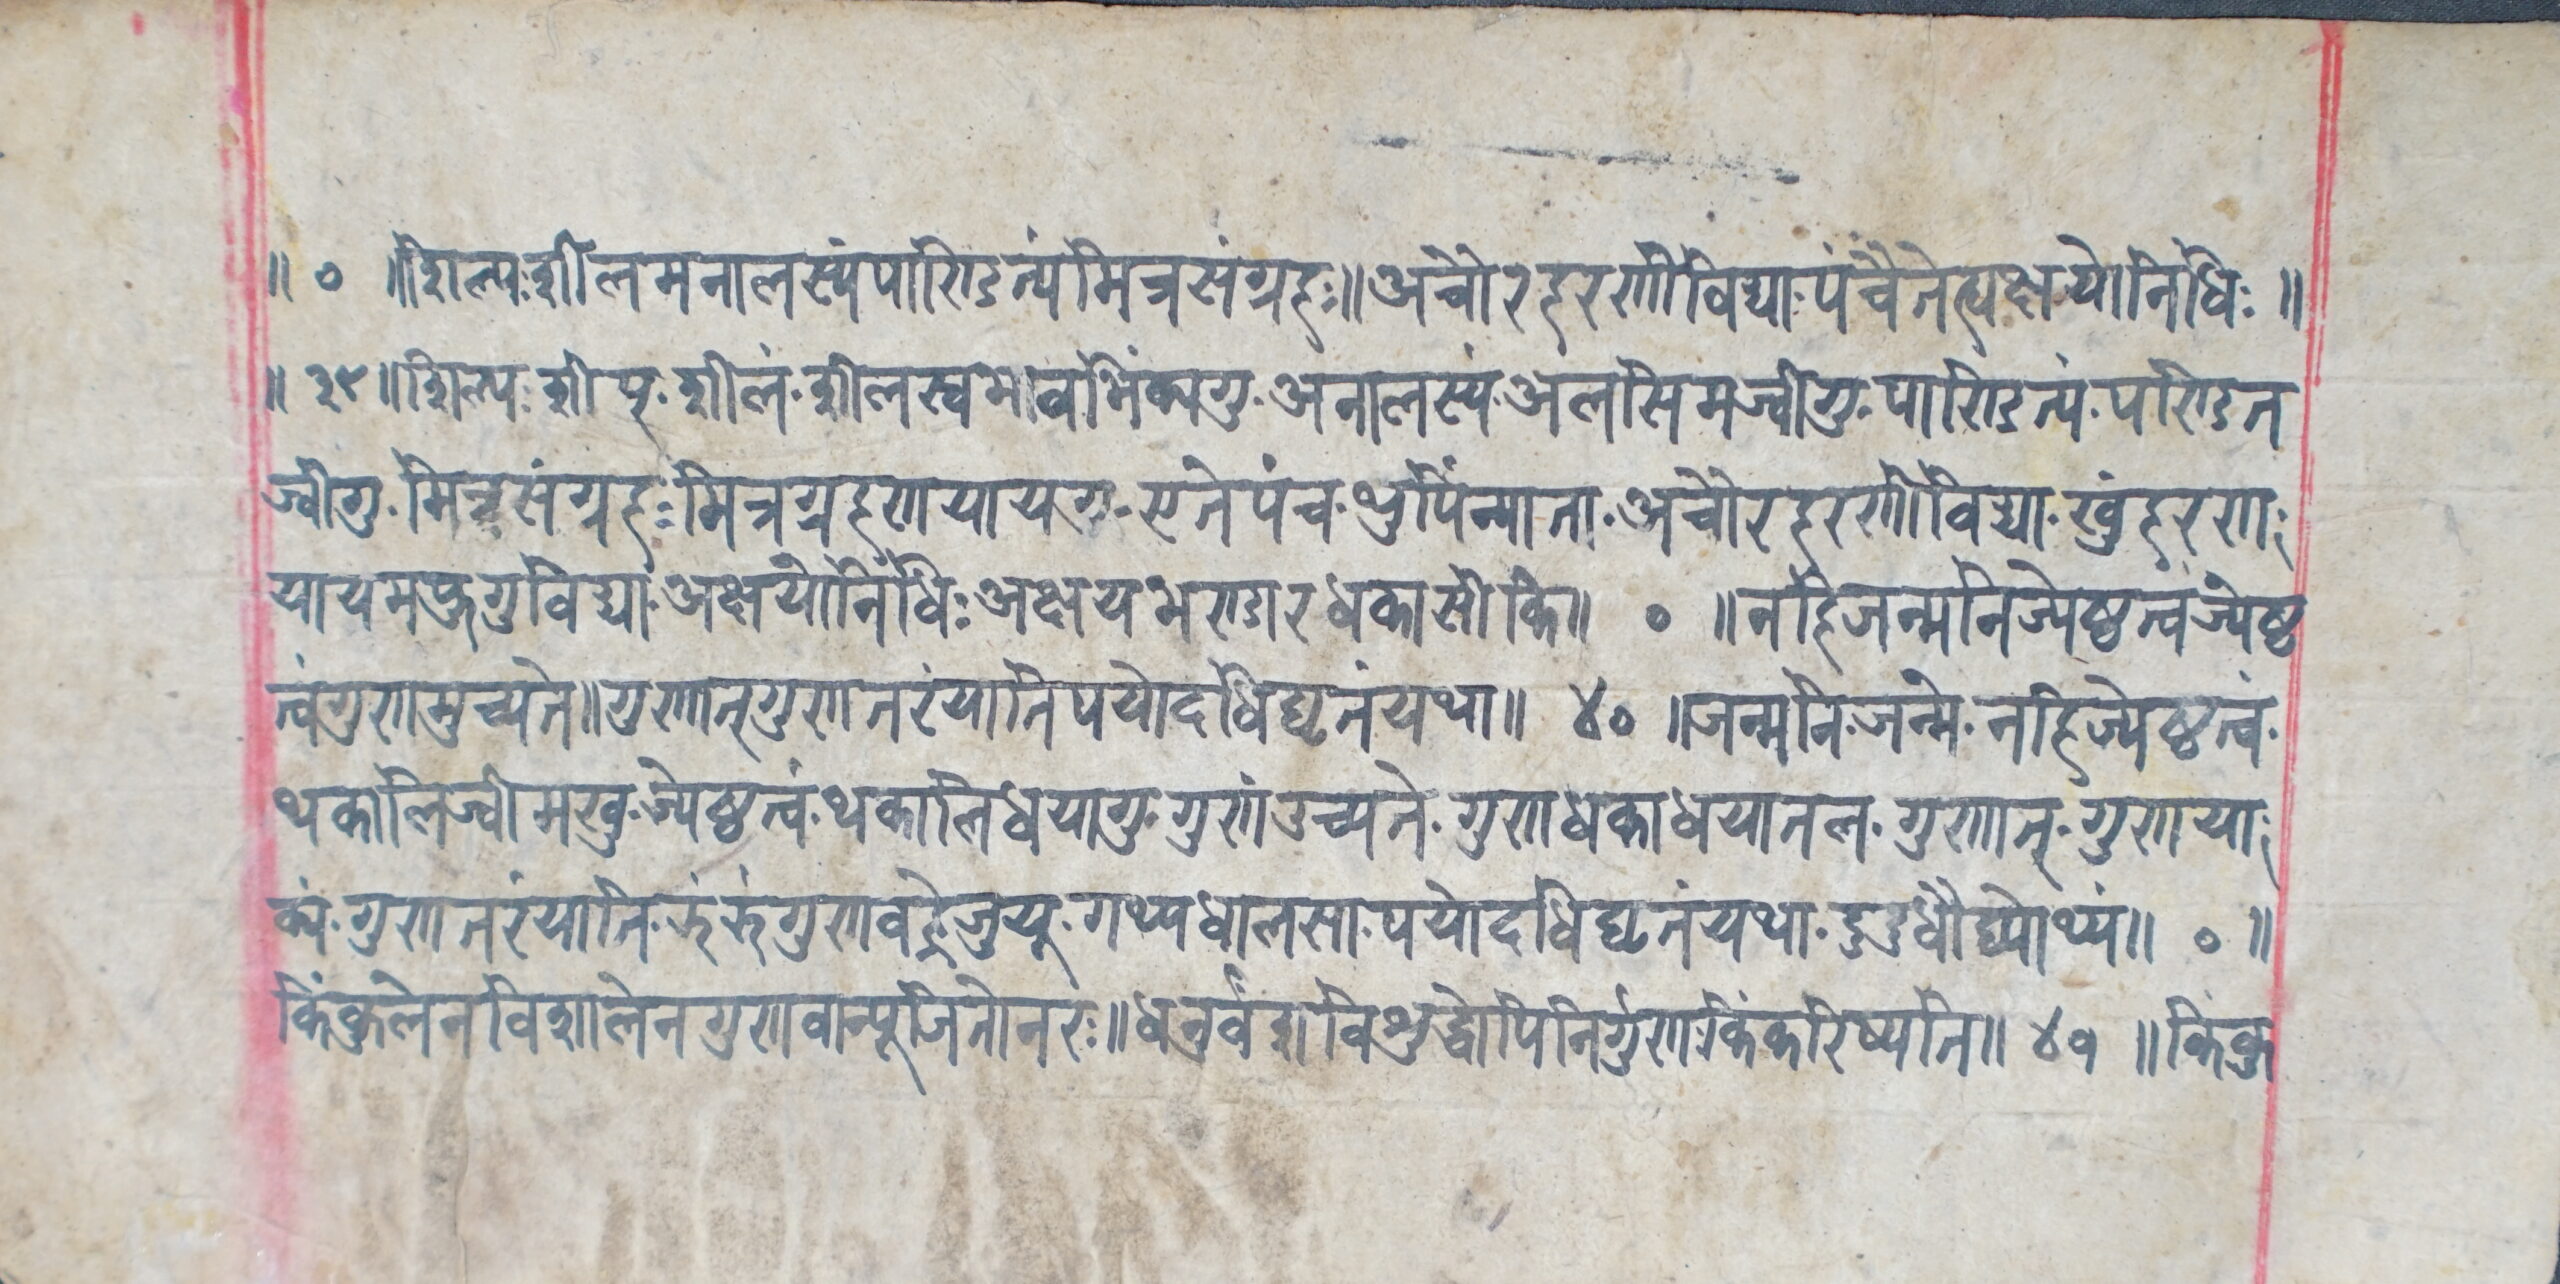 ॥ ० ॥शिल्पःशीलमनालस्यंपाण्डित्यंमित्रसंग्रहः॥अचौरहरणीविद्याःपंचैतेत्यक्षयोनिधिः॥
॥३९॥शिल्पःशीप्·शीलं·शीलस्वभावभिंक्यगु·अनालस्यं·अलसिमज्वीगु·पाण्डित्यं·पण्डित
ज्वीगु·मित्रसंग्रहःमित्रग्रहणयायगु·एतेपंच·थुपिंन्याता·अचौरहरणीविद्या·खुंहरणा
यायमफुगुविद्या·अक्षयोनिधिःअक्षयभण्डारधकासीकि॥ ० ॥नहिजन्मनिज्येष्ठत्वंज्येष्ठ
त्वंगुणमुच्यते॥गुणात्गुणतरंयातिपयोदधिघृतंयथा॥ ४० ॥जन्मनि·जन्मे·नहिज्येष्ठत्वं·
थकालिज्वीमखु·ज्येष्ठत्वं·थकालिधयागु·गुणंउच्यते·गुणधकाधयातल·गुणात्·गुणया
क्यं·गुणतरंयाति·झंझंगुणवहेजुयू·गथ्यधालसा·पयोदधिघृतंयथा·दुदुधौघ्योथ्यं॥ ० ॥
किंकुलेनविशालेनगुणवान्पूजितोनरः॥धनुर्वंशविशुद्धोपिनिर्गुणःकिंकरिष्यति॥ ४१ ॥किंकु